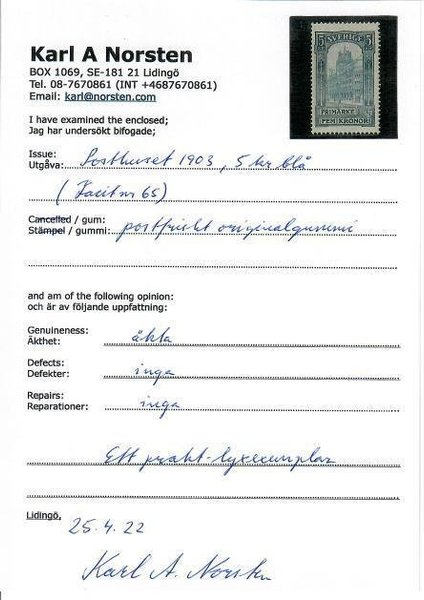 Karl A Norsten
BOX 1069, SE-181 21 Lidingö
Tel. 08-7670861 (INT +4687670861)
Email: karl@norsten.com
5 SVERIGE 5
FRIMÄRKE
FEM KRONOR
I have examined the enclosed;
Jag har undersökt bifogade;
Issue:
Utgåva: Posthuset 1903, 5 kr blå
(Facit nr 65)
Cancelled / gum:
Stämpel / gummi: postfriskt originalgummi
and am of the following opinion:
och är av följande uppfattning:
Genuineness:
Äkthet: äkta
Defects:
Defekter: inga
Repairs:
Reparationer: inga
Ett prakt-lyxexemplar
Lidingö,
25.4.22
Karl A. Norsten